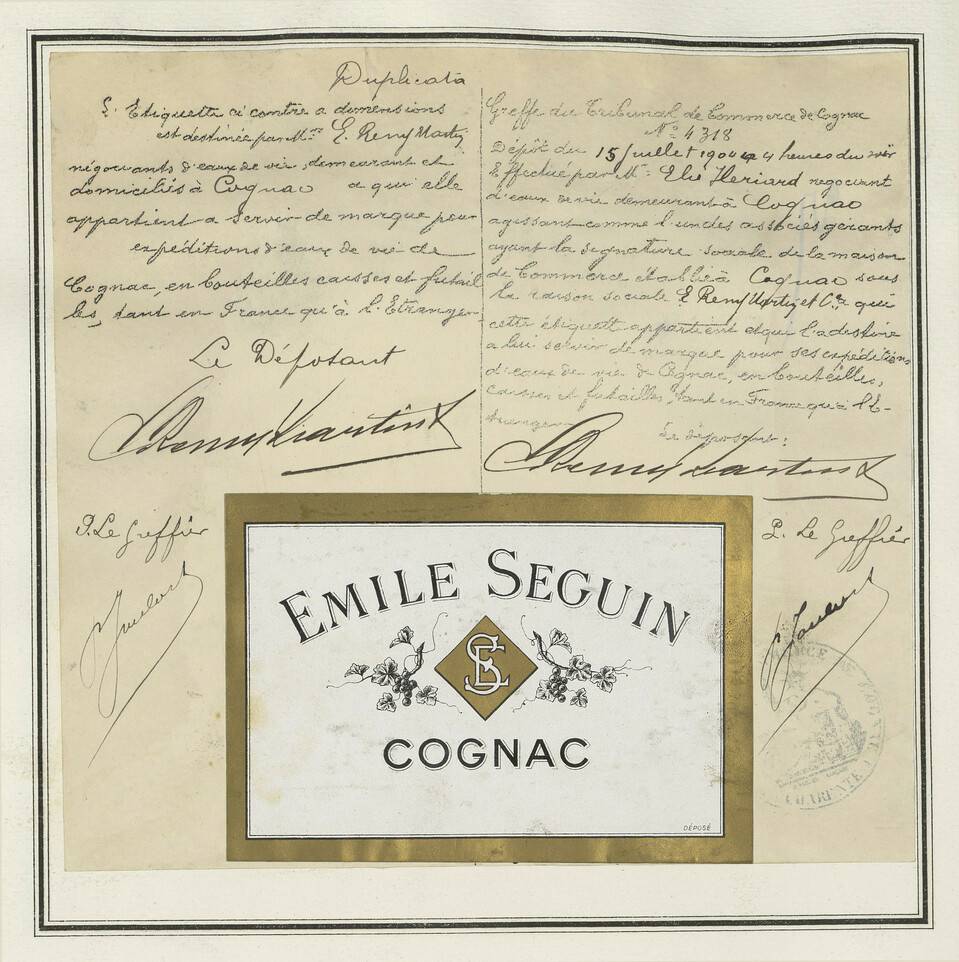 Duplicata
L'Etiquette ci contre a dimensions
est destinée par M.rs E. Remy Martin
négociants d'eaux de vie, demeurant et
domiciliés à Cognac a qui elle
appartient a servir de marque pour
expéditions d'eaux de vie de
Cognac, en bouteilles caisses et futail
les, tant en France qu'à l'Etranger
Le Déposant
E Remy Martin & Co
P. Le Greffier
Greffe du Tribunal de Commerce de Cognac
N° 4318
Dépôt du 15 Juillet 1904 a 4 heures du soir
Effectué par M. Elie Heriard negociant
d'eaux de vie demeurant à Cognac
agissant comme l'un des associés gérants
ayant la signature sociale de la maison
de Commerce établie à Cognac sous
la raison sociale E Remy Martin et Cie qui
cette étiquette appartient et qui l'a destine
a lui servir de marque pour ses expéditions
d'eaux de vie de Cognac, en bouteilles,
caisses et futailles, tant en France qu'à l'E-
tranger
Le déposant:
E Remy Martin & Co
P. Le Greffier
EMILE SEGUIN
ES
COGNAC
DÉPOSÉ
CHARENTE